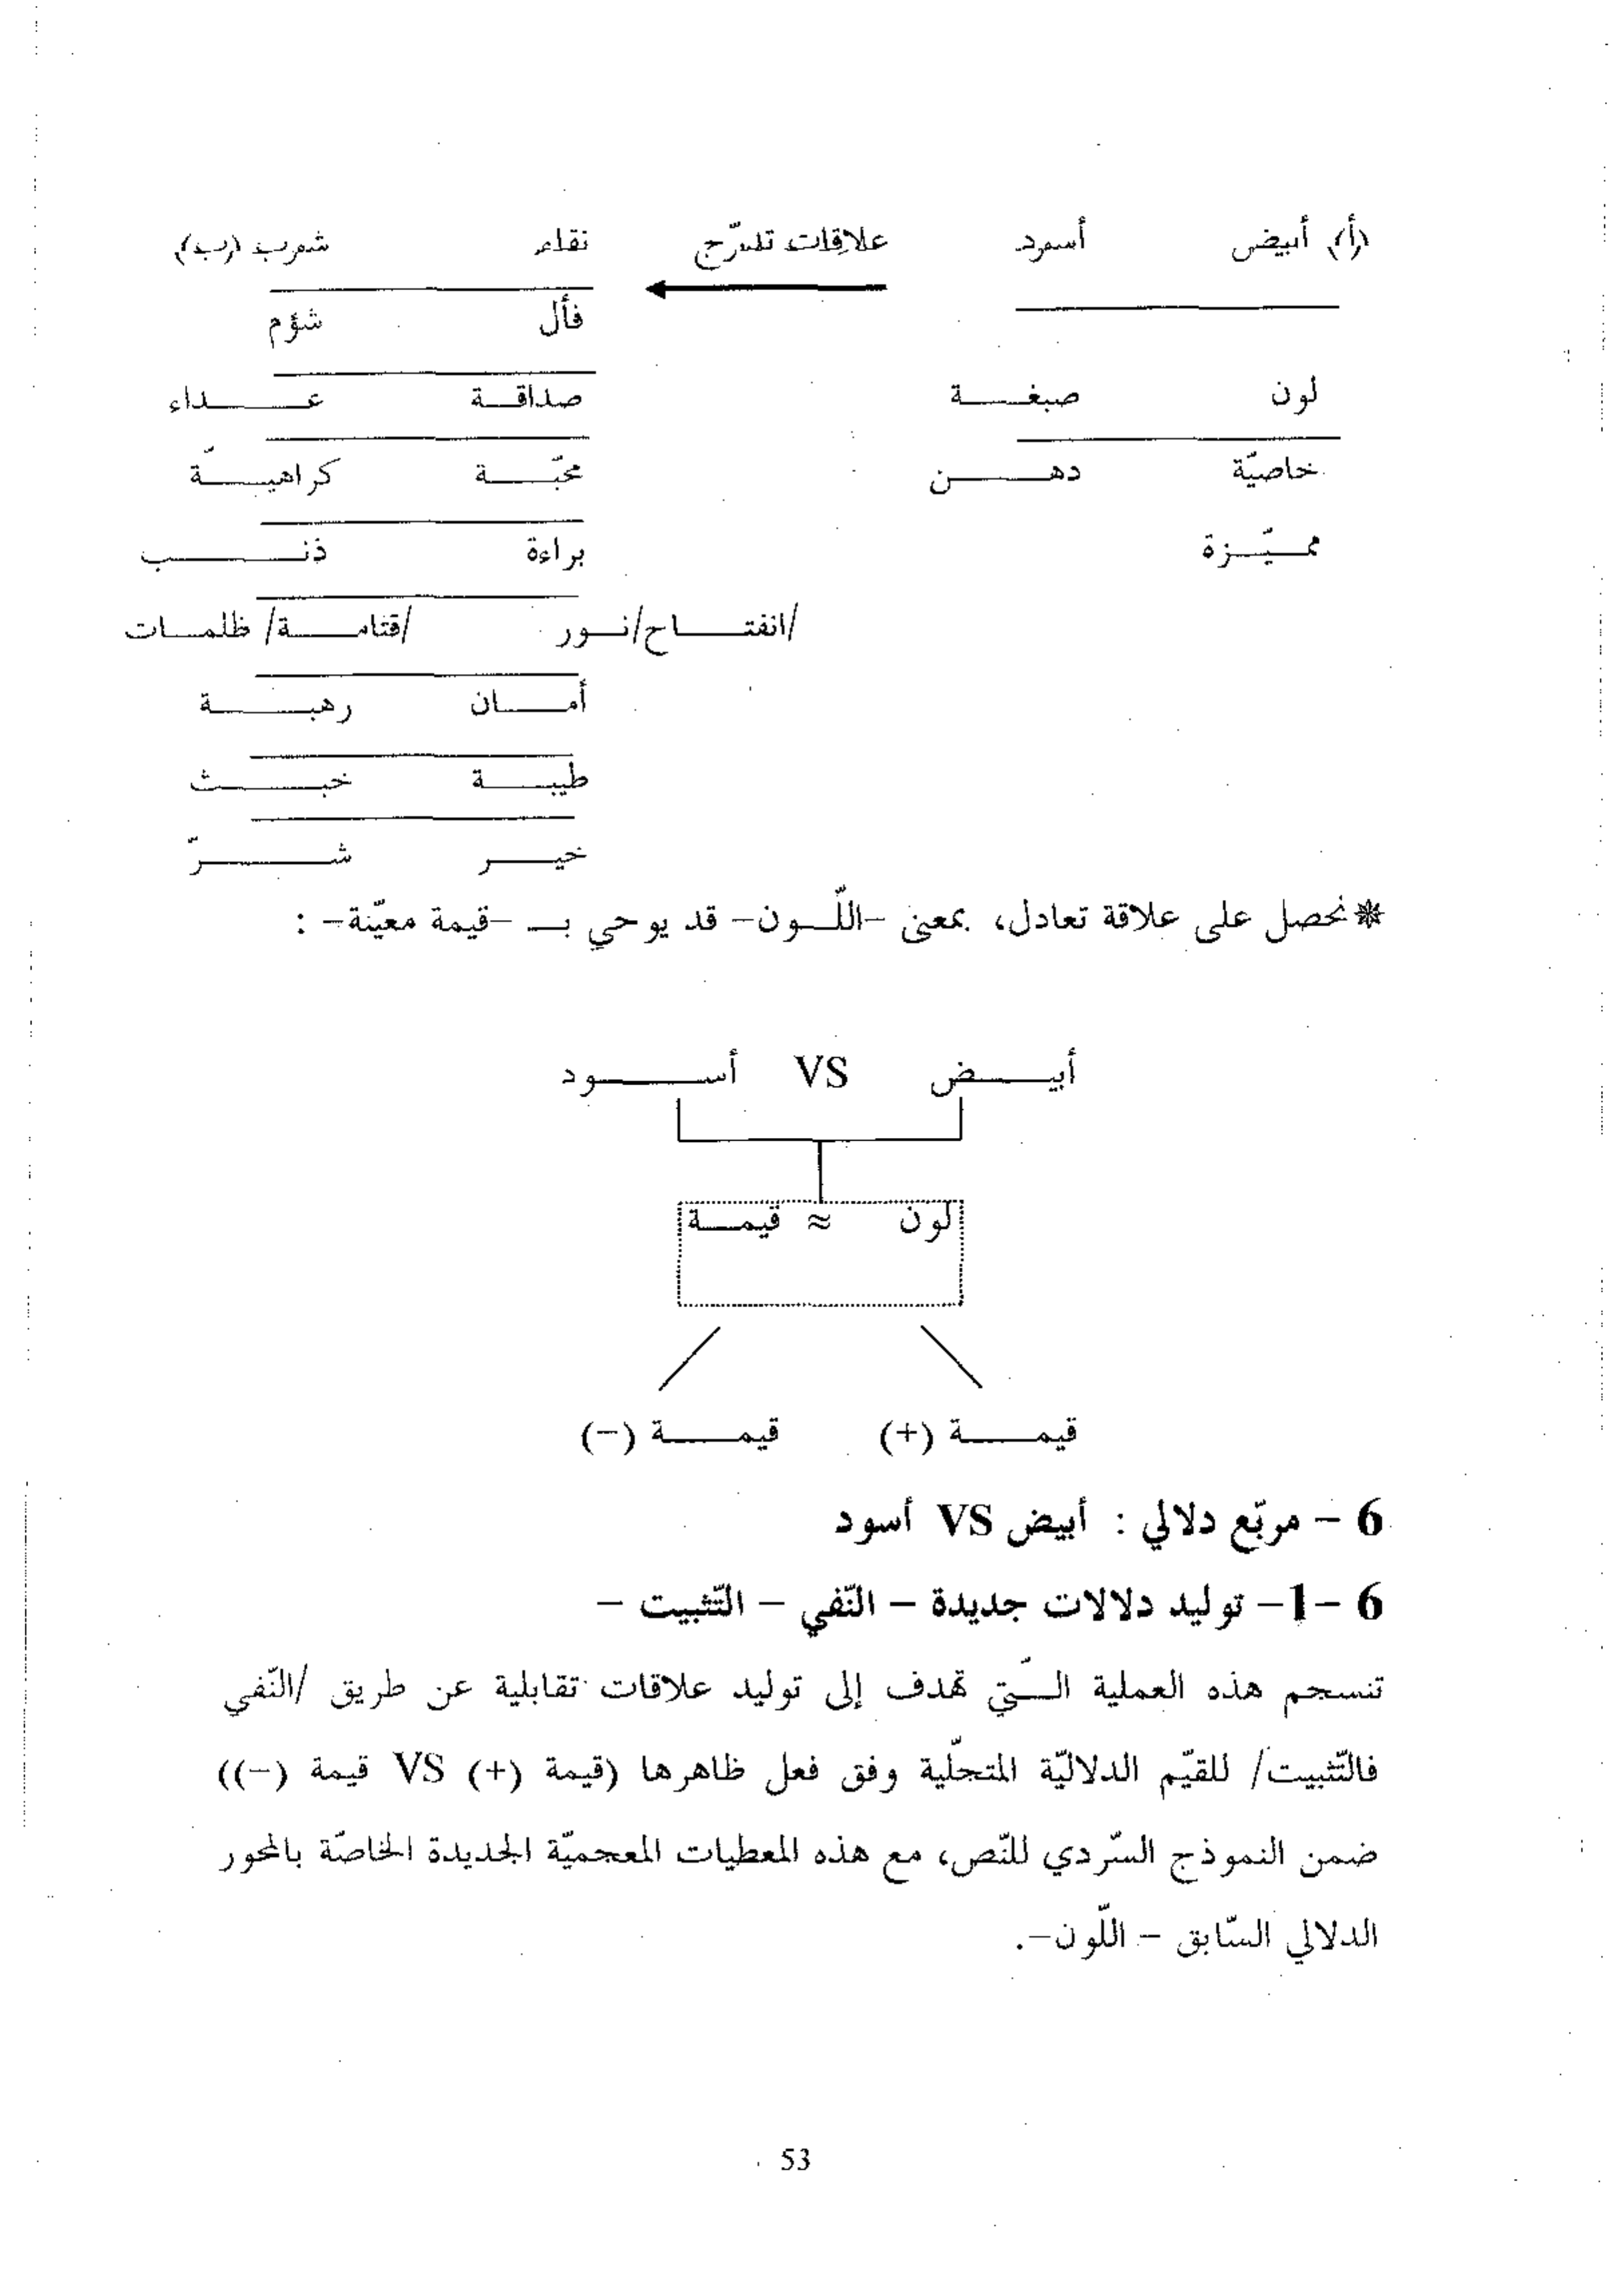 (أ) أبيض أسود علاقات تدرّج نقاء شوب (ب)
فأل شؤم
لون صبغة صداقة عداء
خاصيّة دهن محبّة كراهيّة
مميّزة براءة ذنب
/انفتاح/نور /قتامة/ ظلمات
أمان رهبة
طيبة خبث
خير شرّ
* نحصل على علاقة تعادل، بمعنى -اللّون- قد يوحي بـ -قيمة معيّنة- :
أبيض VS أسود
لون ≈ قيمة
قيمة (+) قيمة (-)
6 - مربّع دلالي : أبيض VS أسود
6 -1- توليد دلالات جديدة - النّفي - التّثبيت -
تنسجم هذه العملية الّتي تهدف إلى توليد علاقات تقابلية عن طريق /النّفي
فالتّثبيت/ للقيّم الدلاليّة المتجلّية وفق فعل ظاهرها (قيمة (+) VS قيمة (-))
ضمن النموذج السّردي للنّص، مع هذه المعطيات المعجميّة الجديدة الخاصّة بالمحور
الدلالي السّابق - اللّون-.
53